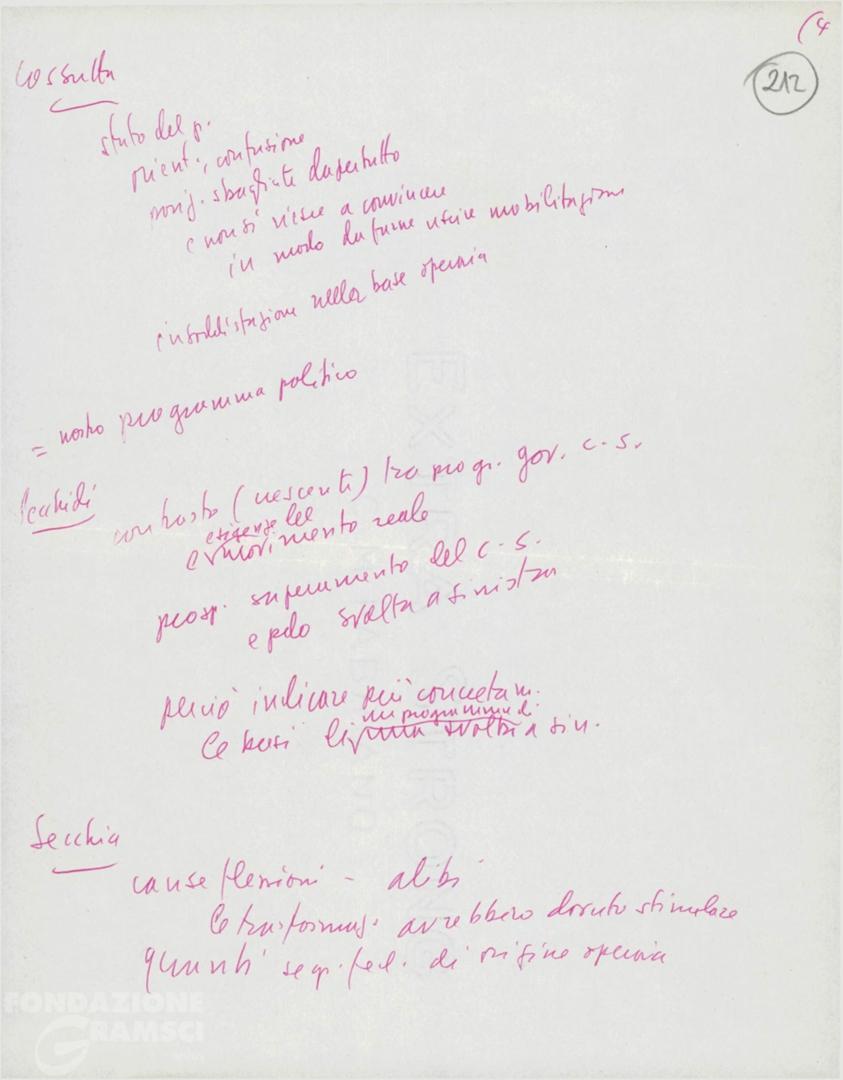 (4
212
Cossutta
stato del p.
orient., confusione
sbagliate dapertutto
e non si riesce a convincere
in modo da farne uscire mobilitazione
insoddisfazione nella base operaia
= nostro programma politico
Scalidi
contrasto (crescente) tra progr. gov. c.s.
esigenze del
e movimento reale
prosp. superamento del c.s.
e pdo svolta a sinistra
perciò indicare più concretam.
un programma di
le basi di una svolta a sin.
Secchia
cause flessioni - alibi
le trasformaz. avrebbero dovuto stimolare
quanti segr. fed. di origine operaia
FONDAZIONE
GRAMSCI